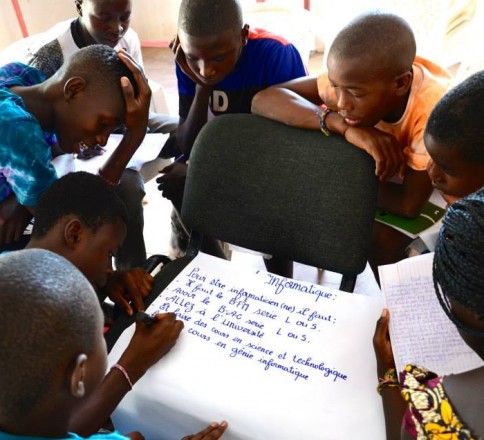 "Informatique:
Pour être informatisien(ne) il faut:
Il faut le BFM serie L ou S.
Avoir le BAC serie L ou S.
ALLEZ à l'université
et faire des cours en science et technologique
cours en génie informatique
D